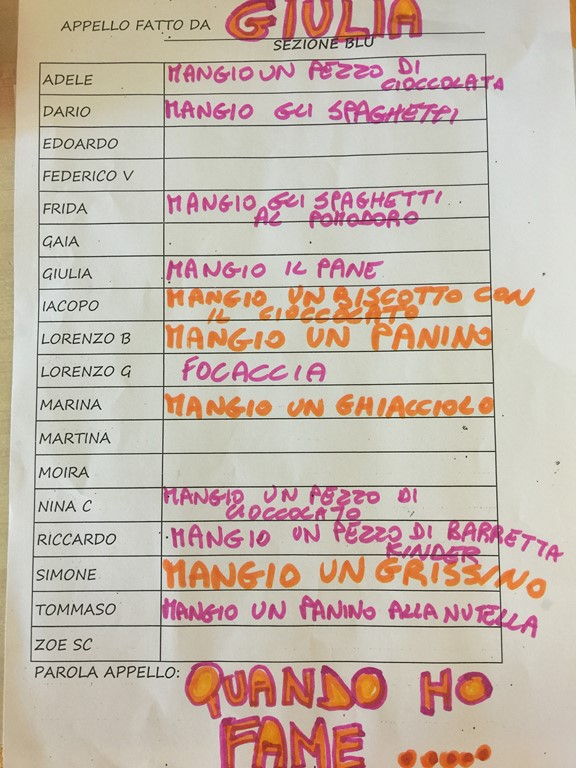 APPELLO FATTO DA GIULIA
SEZIONE BLU
ADELE MANGIO UN PEZZO DI
CIOCCOLATA
DARIO MANGIO GLI SPAGHETTI
EDOARDO
FEDERICO V
FRIDA MANGIO GLI SPAGHETTI
AL POMODORO
GAIA
GIULIA MANGIO IL PANE
IACOPO MANGIO UN BISCOTTO CON
IL CIOCCOLATO
LORENZO B MANGIO UN PANINO
LORENZO G FOCACCIA
MARINA MANGIO UN GHIACCIOLO
MARTINA
MOIRA
NINA C MANGIO UN PEZZO DI
CIOCCOLATO
RICCARDO MANGIO UN PEZZO DI BARRETTA
KINDER
SIMONE MANGIO UN GRISSINO
TOMMASO MANGIO UN PANINO ALLA NUTELLA
ZOE SC
PAROLA APPELLO: QUANDO HO
FAME .....